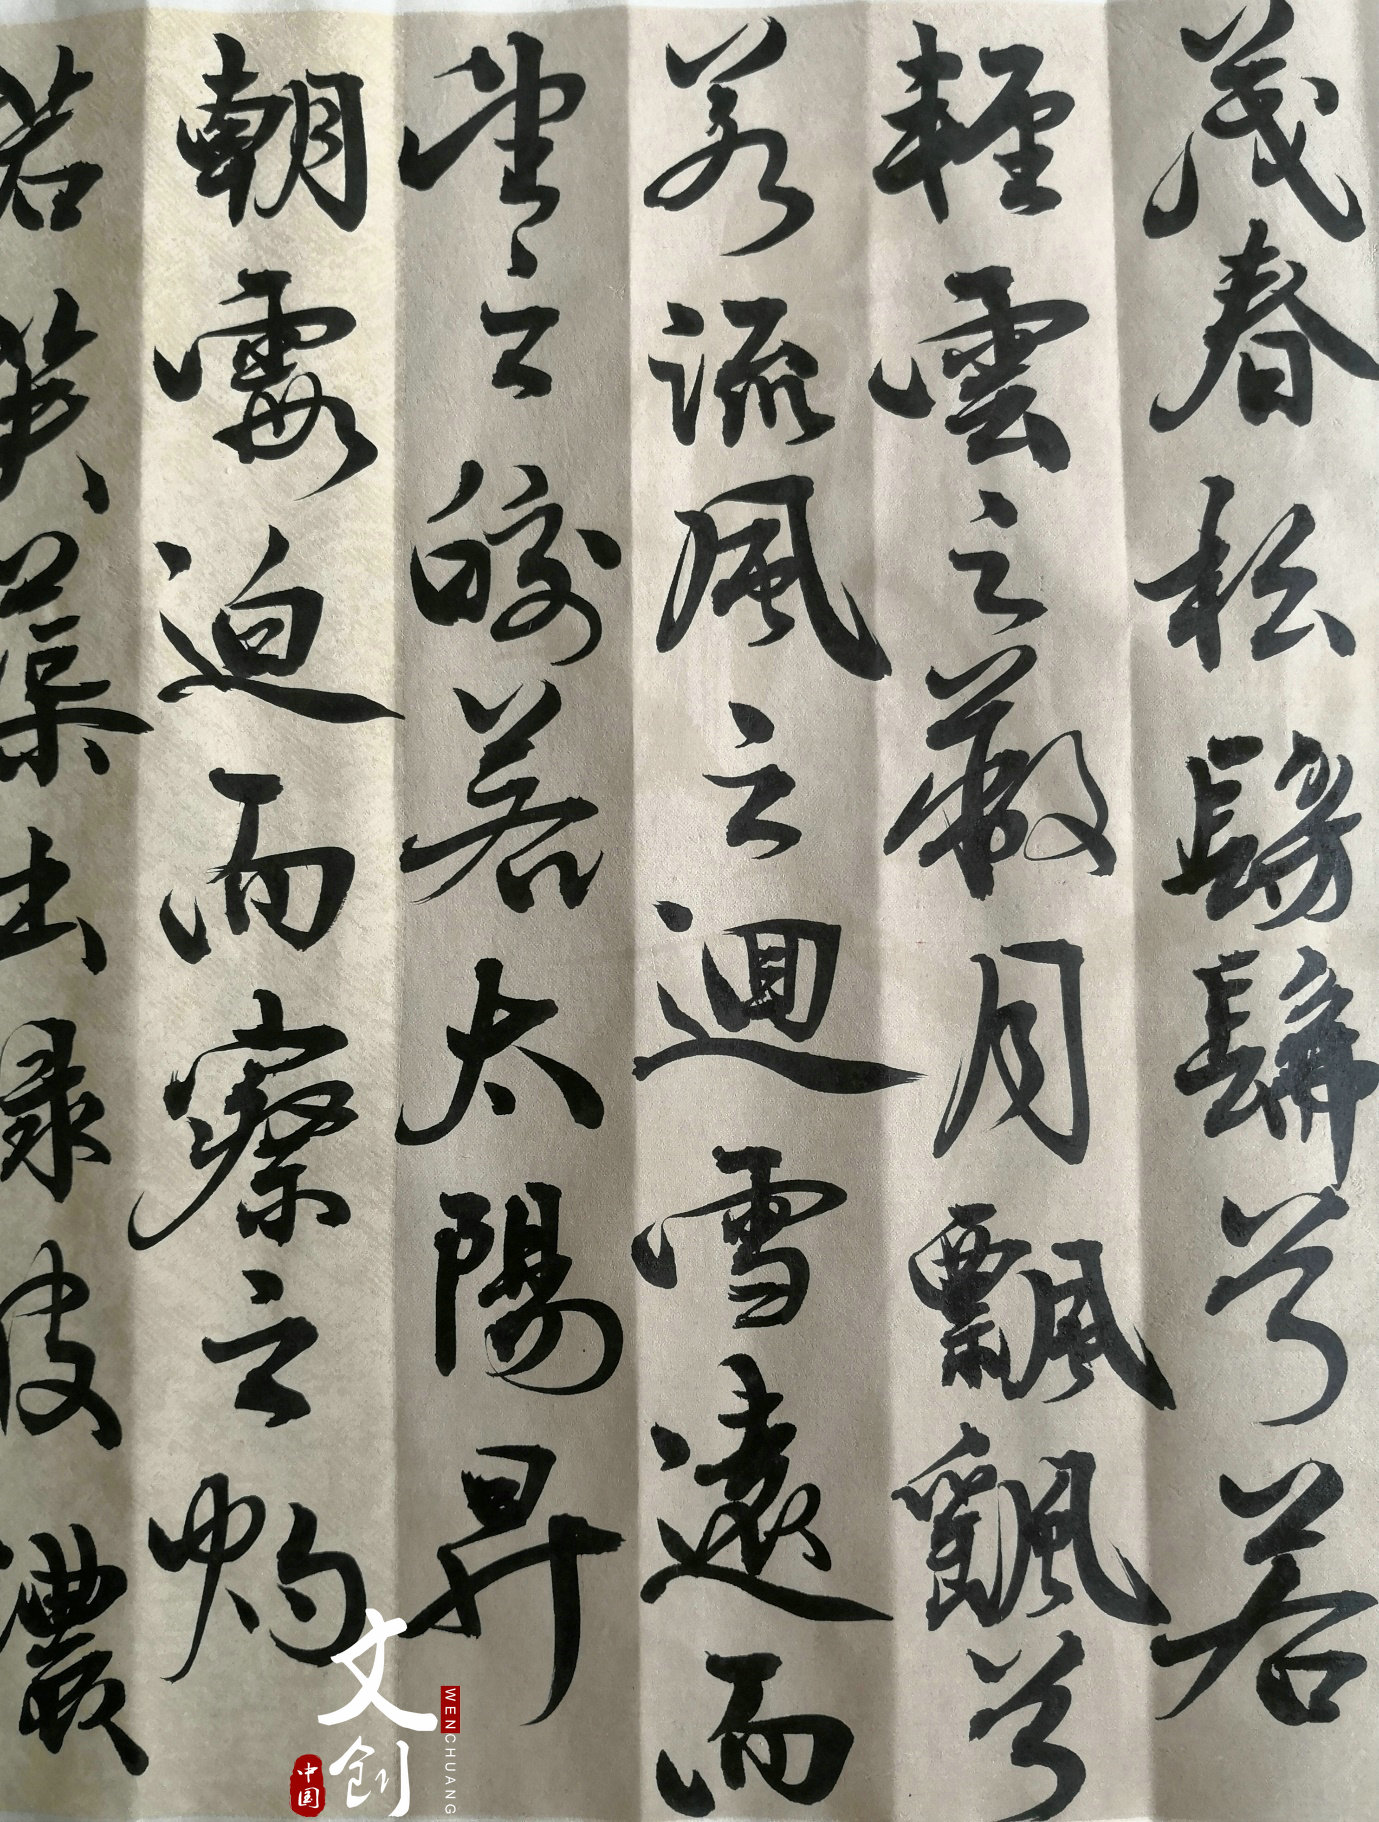 茂春松髣髴兮若
輕雲之蔽月飄飖兮
若流風之迴雪遠而
望之皎若太陽昇
朝霞迫而察之灼
若芙蕖出淥波襛
文创
WENCHUANG
中国